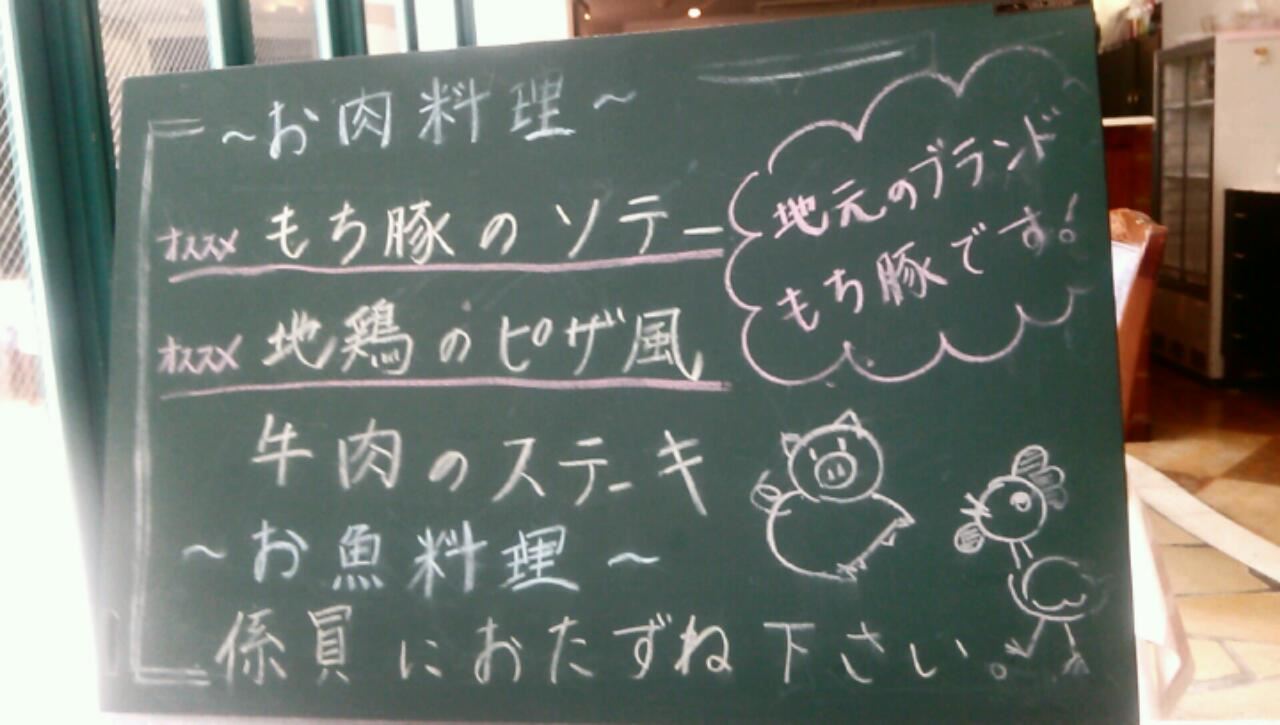 ~お肉料理~
オススメ もち豚のソテー
オススメ 地鶏のピザ風
牛肉のステーキ
~お魚料理~
係員におたずね下さい。
地元のブランド
もち豚です!